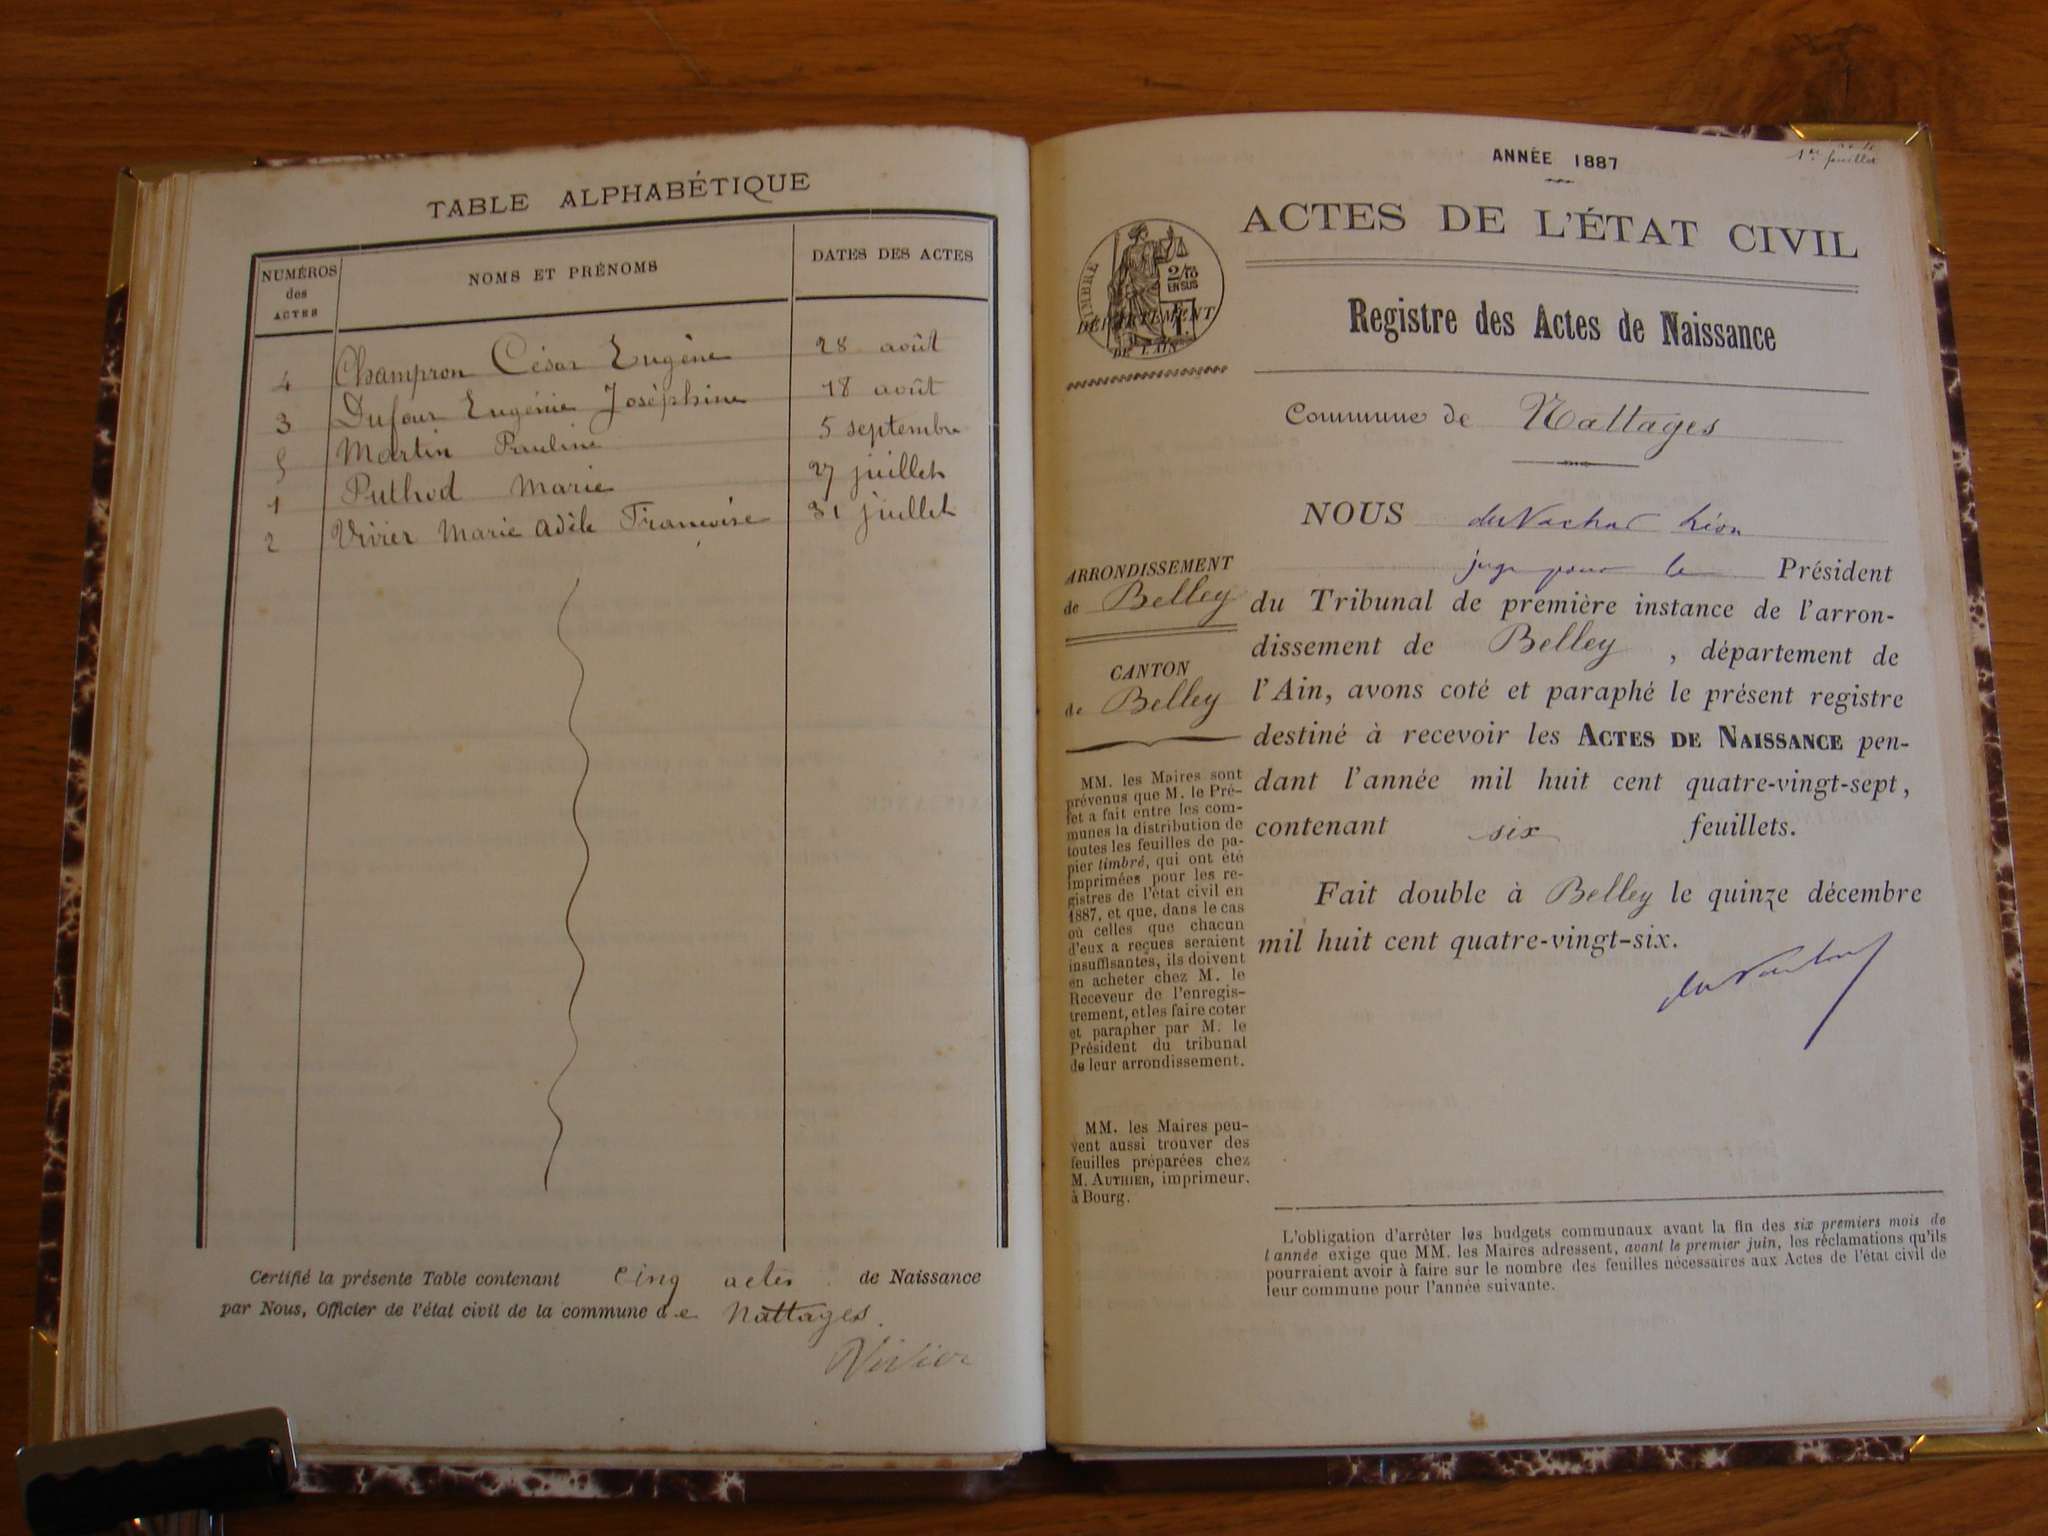 TABLE ALPHABÉTIQUE
NUMÉROS des ACTES
NOMS ET PRÉNOMS
DATES DES ACTES
4 Champron César Eugène 28 août
3 Dufour Eugénie Joséphine 18 août
5 Martin Pauline 5 septembre
1 Puthod Marie 27 juillet
2 Vivier Marie Adèle Françoise 31 juillet
Certifié la présente Table contenant Cinq actes de Naissance
par Nous, Officier de l'état civil de la commune de Nattages.
Vivier
ANNÉE 1887
1er feuillet
ACTES DE L'ÉTAT CIVIL
TIMBRE
2/10
EN SUS
DÉPARTEMENT
DE L'AIN
Registre des Actes de Naissance
Commune de Nattages
ARRONDISSEMENT
de Belley
CANTON
de Belley
MM. les Maires sont
prévenus que M. le Pré-
fet a fait entre les com-
munes la distribution de
toutes les feuilles de pa-
pier timbré, qui ont été
imprimées pour les re-
gistres de l'état civil en
1887, et que, dans le cas
où celles que chacun
d'eux a reçues seraient
insuffisantes, ils doivent
en acheter chez M. le
Receveur de l'enregis-
trement, et les faire coter
et parapher par M. le
Président du tribunal
de leur arrondissement.
MM. les Maires peu-
vent aussi trouver des
feuilles préparées chez
M. AUTHIER, imprimeur,
à Bourg.
NOUS Léon
juge pour le Président
du Tribunal de première instance de l'arron-
dissement de Belley, département de
l'Ain, avons coté et paraphé le présent registre
destiné à recevoir les ACTES DE NAISSANCE pen-
dant l'année mil huit cent quatre-vingt-sept,
contenant six feuillets.
Fait double à Belley le quinze décembre
mil huit cent quatre-vingt-six.
L'obligation d'arrêter les budgets communaux avant la fin des six premiers mois de
l'année exige que MM. les Maires adressent, avant le premier juin, les réclamations qu'ils
pourraient avoir à faire sur le nombre des feuilles nécessaires aux Actes de l'état civil de
leur commune pour l'année suivante.